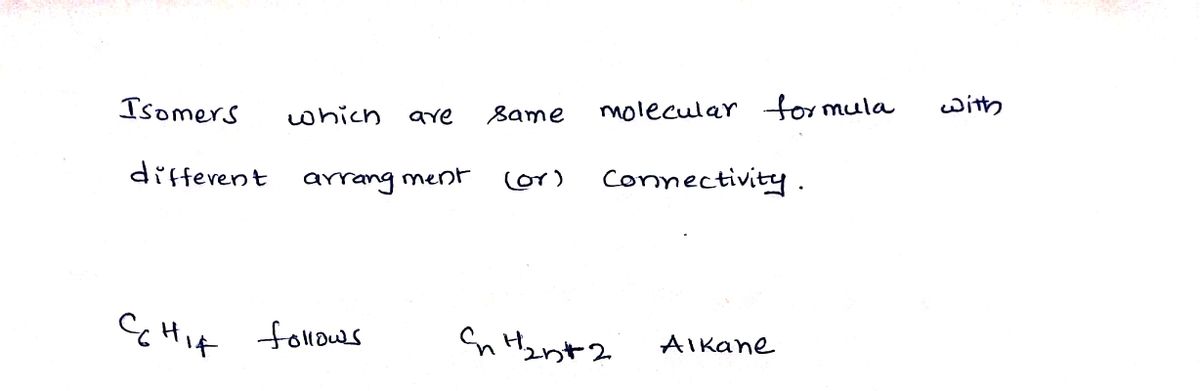 Isomers which are same molecular formula with
different arrangment (or) Connectivity.
C₆H₁₄ follows CₙH₂ₙ₊₂ Alkane